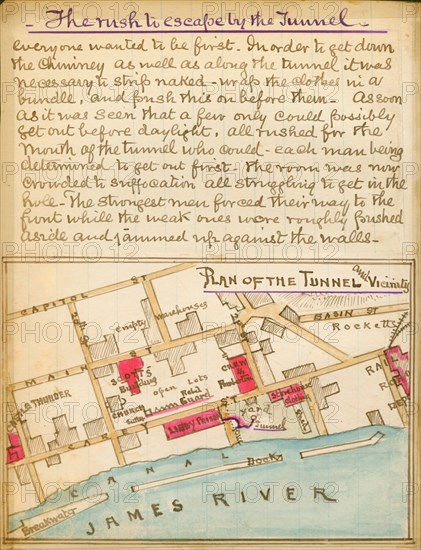 - The rush to escape by the Tunnel -
everyone wanted to be first. In order to get down
the Chimney as well as along the tunnel it was
necessary to strip naked - wrap the clothes in a
bundle, and push this on before them - As soon
as it was seen that a few only could possibly
get out before daylight, all rushed for the
mouth of the tunnel who could - each man being
determined to get out first. The room was now
crowded to suffocation all struggling to get in the
hole - The strongest men forced their way to the
front while the weak ones were roughly pushed
aside and jammed up against the walls -
PLAN OF THE TUNNEL and Vicinity
CAPITOL S
Empty
Warehouses
BASIN ST
Rocketts
MAIN S
SCOTT'S
Building
open Lots
CASTLE THUNDER
CHURCH
Guard
Libby Prison
yard
Tunnel
CAR
CANAL
Dock
Breakwater
JAMES RIVER